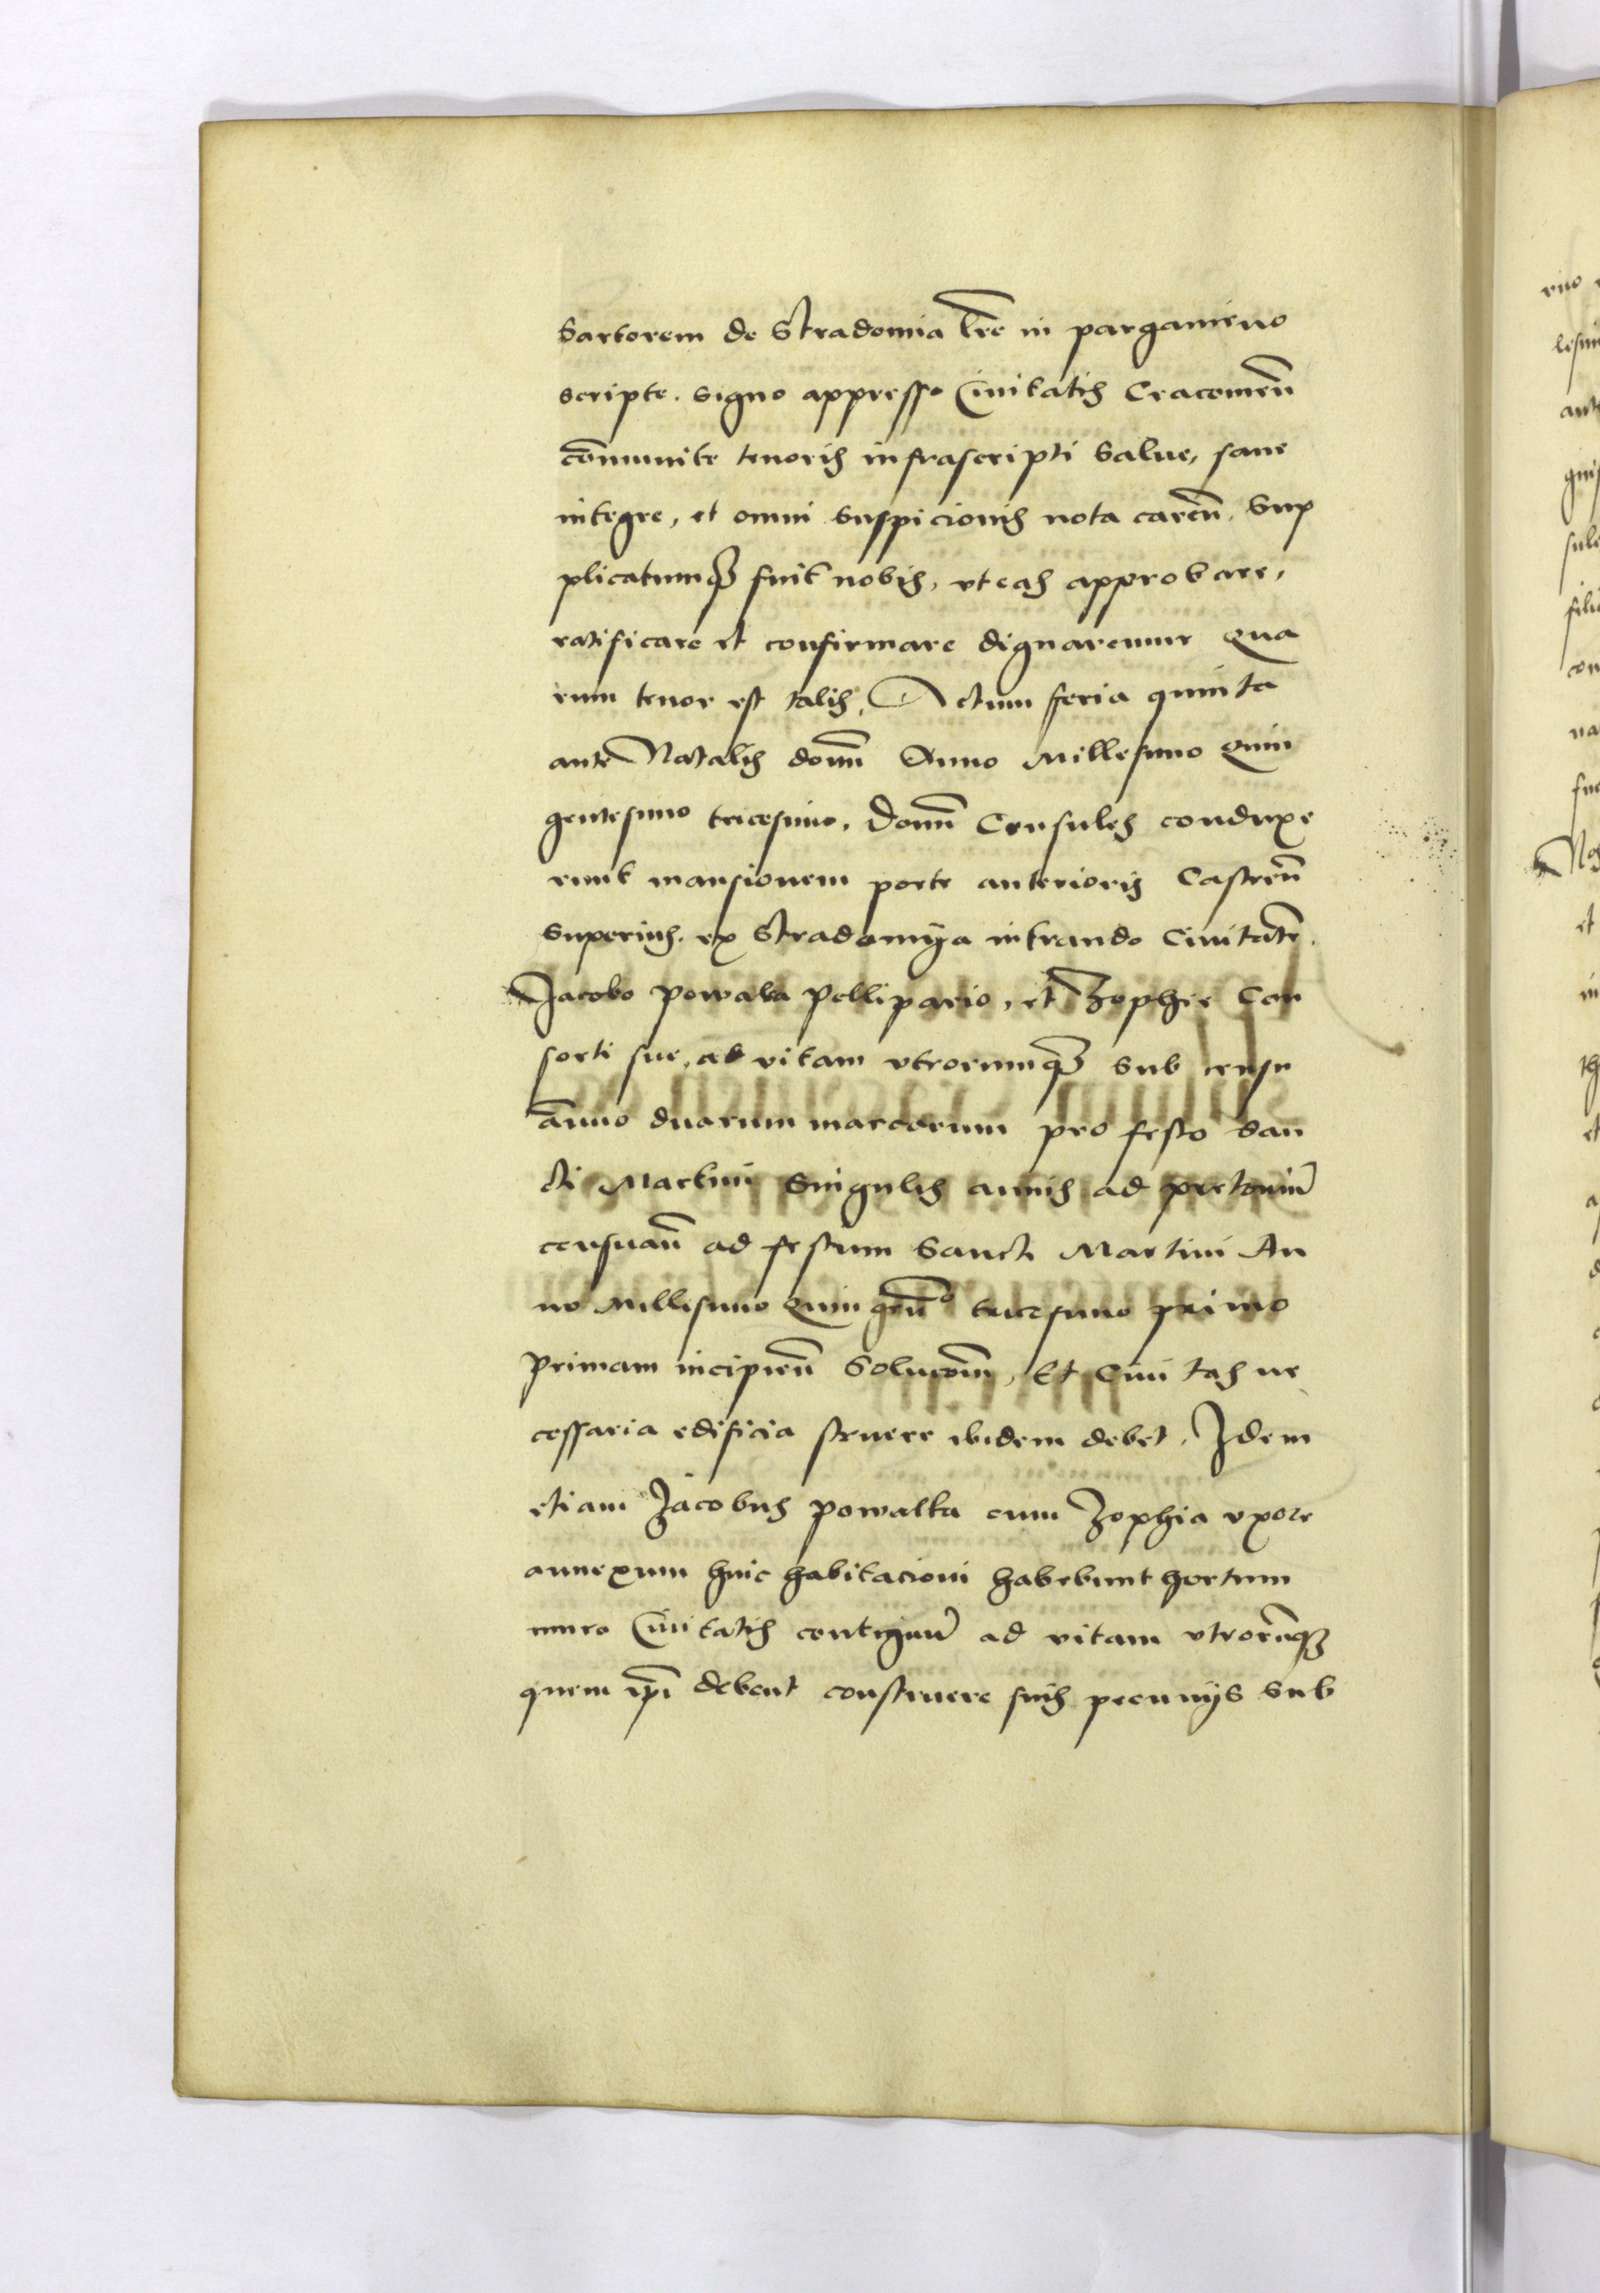 Sartorem de Stradomia lr̄e in pargameno
scripte. signo appresso Ciuitatis Cracouieñ
cōmunite tenoris infrascripti Salue, sane
integre, et omni Suspicionis nota careñ. Sup
plicatumqȝ fuit nobis, vt eas approbare,
ratificare et confirmare dignaremur Qua
rum tenor est talis. Actum feria quinta
ante Natalis domī Anno Millesimo Quin
gentesimo tricesimo. Domī Consules conduxe
runt mansionem porte anterioris Castreñ
Superius. ex Stradomÿa intrando Ciuitatē.
Jacobo Powalka Pellipario, et Zophie Con
sorti sue, ad vitam vtrorumqȝ sub censu
āmuo duarum marcarum pro festo San
cti Martini Singulis annis ad pretoriū
censuañ ad festum Sancti Martini An
no Millesimo Quingeñº tricesimo primo
Primam incipieñ Solucōm̄, Et Ciuitas ne
cessaria edificia struere ibidem debet. Idem
etiam Jacobus Powalka cum Zophia vxore
annexum huic habitacioni habebunt hortum
muro Ciuitatis contiguū ad vitam vtrorūqȝ
quem ip̄i debent construere suis pecunijs Sub